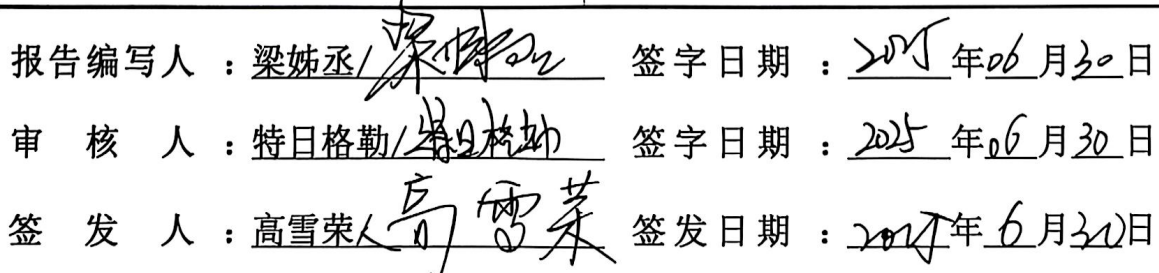 报告编写人：梁姊丞/梁姊丞 签字日期：2025年06月30日
审核人：特日格勒/特日格勒 签字日期：2025年06月30日
签发人：高雪荣/高雪荣 签发日期：2025年6月30日